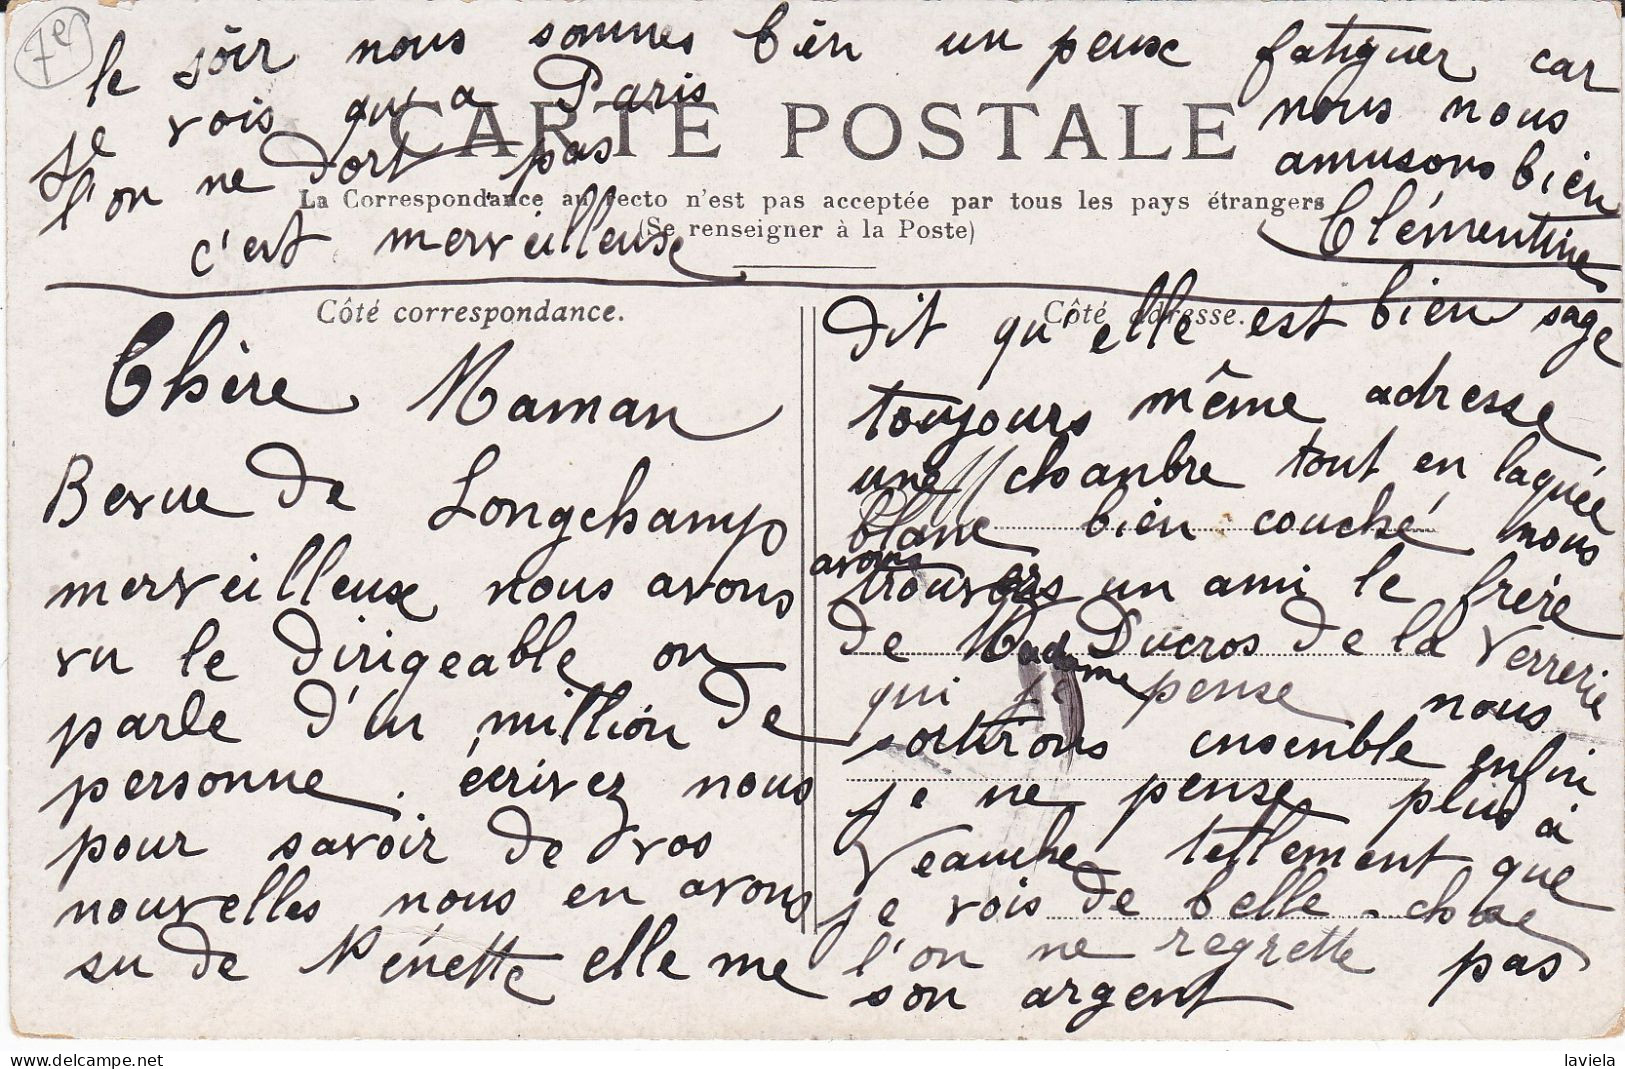 7e
Chère Maman
Bevue de Longchamp
merveilleux nous avons
vu le dirigeable on
parle d'un million de
personne. écrivez nous
pour savoir de vos
nouvelles nous en avons
su de Nénette elle me
dit qu'elle est bien sage
toujours même adresse
une chanbre tout en laquée
blanc bien couché nous
avons
trouvers un ami le frère
de Madame Ducros de la Verrerie
qui je pense nous
sortirons ensenble enfin
je ne pense plus à
Veauche tellement que
je vois de belle chose
l'on ne regrette pas
son argent
le sôir nous sommes bien un peux fatiguer car
je vois qu'a Paris nous nous
l'on ne dort pas amusons bien
c'est merveilleuse Clémentine
CARTE POSTALE
La Correspondance au recto n'est pas acceptée par tous les pays étrangers
(Se renseigner à la Poste)
Côté correspondance.
Côté adresse.
delcampe.net
laviela